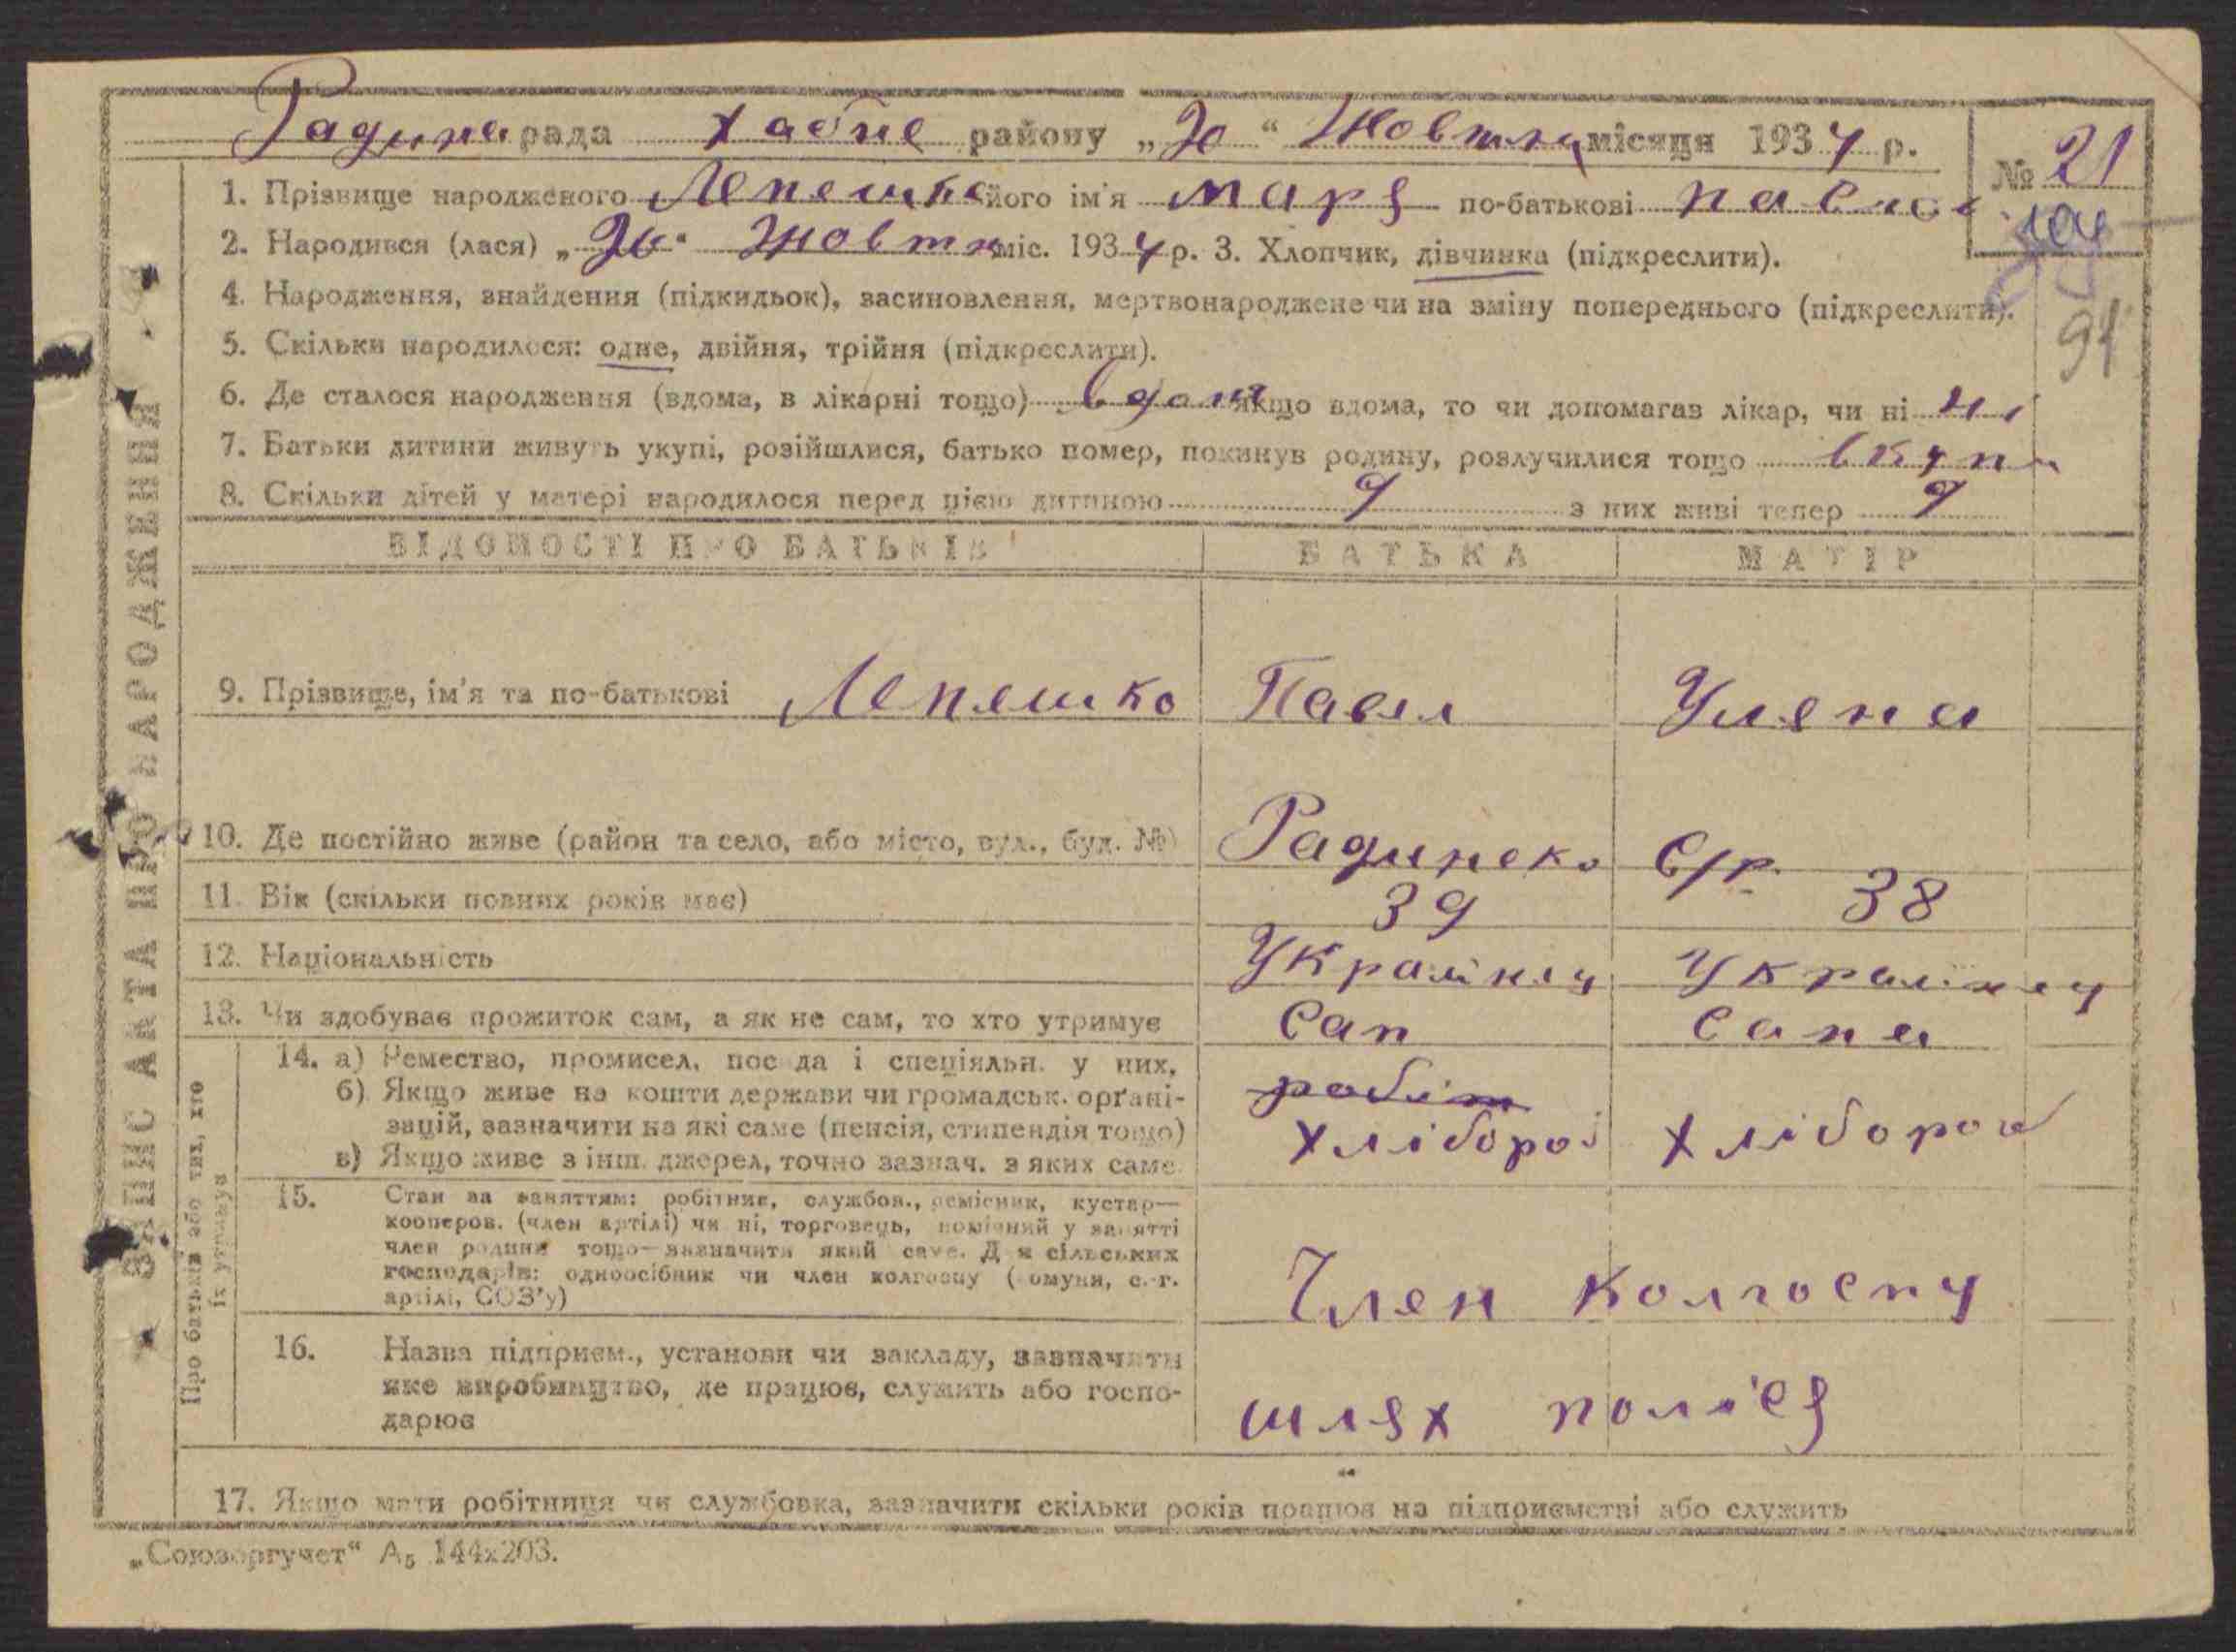 Радина рада Хабне району „30“ Жовтня місяця 1934 р.
№ 21
1. Прізвище народженого Лепешко його ім'я Маря по-батькові Павло
2. Народився (лася) „ “ Жовтн міс. 1934 р. 3. Хлопчик, дівчинка (підкреслити).
4. Народження, знайдення (підкидьок), засиновлення, мертвонароджене чи на зміну попереднього (підкреслити).
91
5. Скільки народилося: одне, двійня, трійня (підкреслити).
6. Де сталося народження (вдома, в лікарні тощо) вдома якщо вдома, то чи допомагав лікар, чи ні ні
7. Батьки дитини живуть укупі, розійшлися, батько помер, покинув родину, розлучилися тощо вкупи
8. Скільки дітей у матері народилося перед цією дитиною 9 з них живі тепер 9
ВІДОМОСТІ ПРО БАТЬКІВ БАТЬКА МАТІР
9. Прізвище, ім'я та по-батькові Лепешко Павел Уляна
10. Де постійно живе (район та село, або місто, вул., буд. №) Радинско С/р.
11. Вік (скільки повних років має) 39 38
12. Національність Украінец Украінец
13. Чи здобуває прожиток сам, а як не сам, то хто утримує Сам Сама
14. а) Ремество, промисел, посада і спеціяльн. у них,
б) Якщо живе на кошти держави чи громадськ. орґані-
зацій, зазначити на які саме (пенсія, стипендія тощо)
в) Якщо живе з інш. джерел, точно зазнач. з яких саме
робіт
хлібороб хлібороб
15. Стан за заняттям: робітник, службов., ремісник, кустар—
кооперов. (член артілі) чи ні, торговець, помічний у занятті
член родини тощо—зазначити який саме. Для сільських
господарів: одноосібник чи член колгоспу (комуни, с.-г.
артілі, СОЗ'у)
Член колгоспу
16. Назва підприєм., установи чи закладу, зазначити
яке виробництво, де працює, служить або госпо-
дарює
шлях поліся
17. Якщо мати робітниця чи службовка, зазначити скільки років працює на підприємстві або служить
„Союзоргучет“ А₅ 144х203.
ЗАПИС АКТА ПРО НАРОДЖЕННЯ
Про батьків або тих, хто
їх утримує